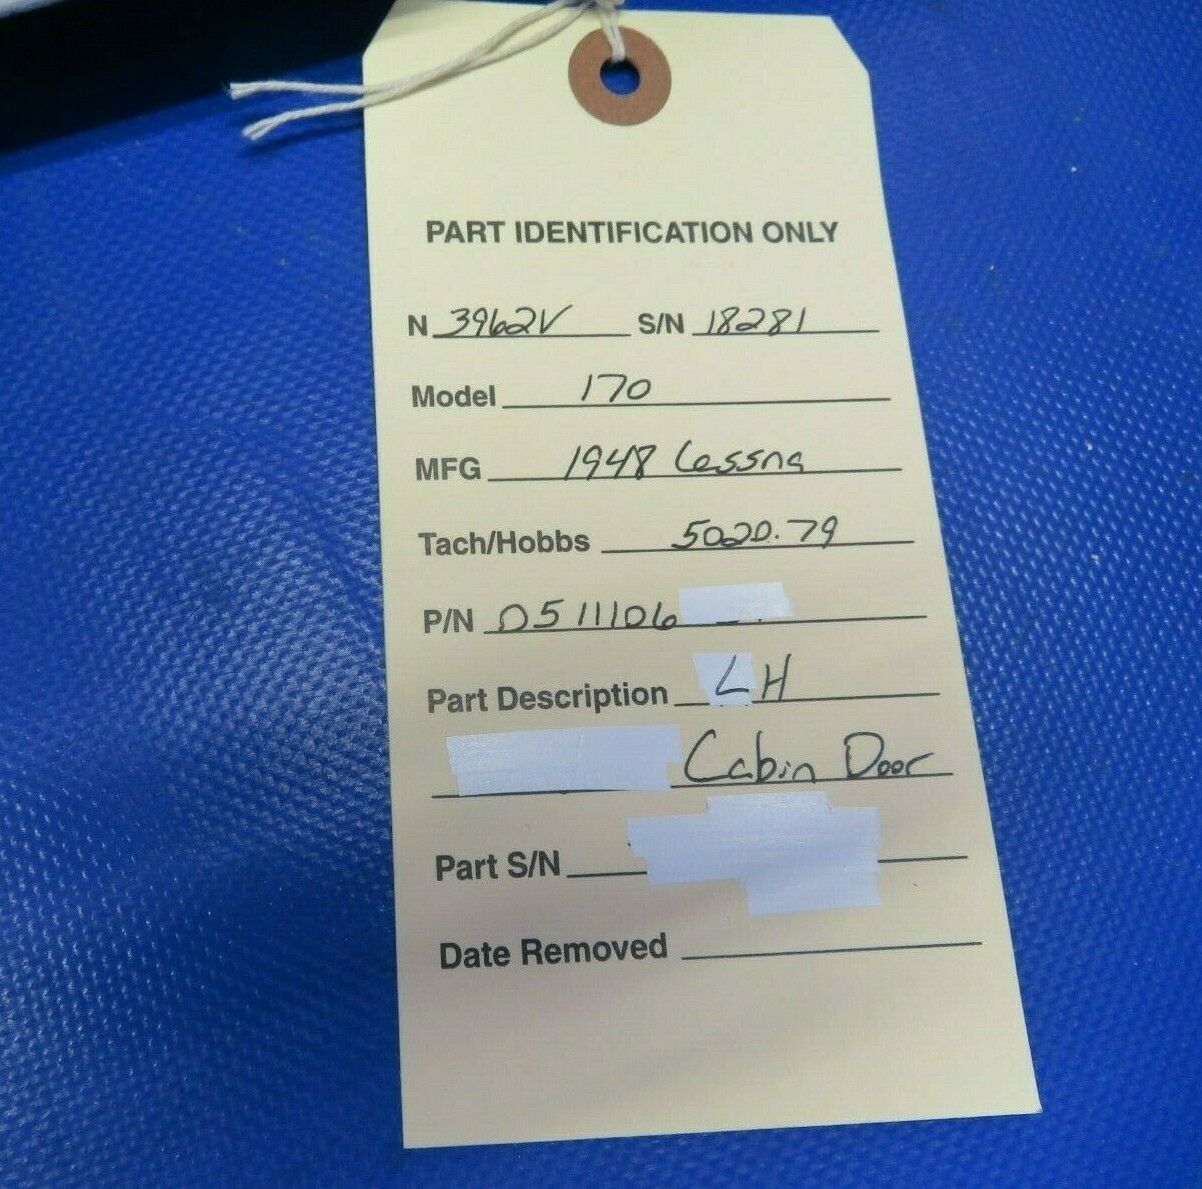 PART IDENTIFICATION ONLY
N 3962V S/N 18281
Model 170
MFG 1948 Cessna
Tach/Hobbs 5020.79
P/N 0511106
Part Description LH
Cabin Door
Part S/N
Date Removed